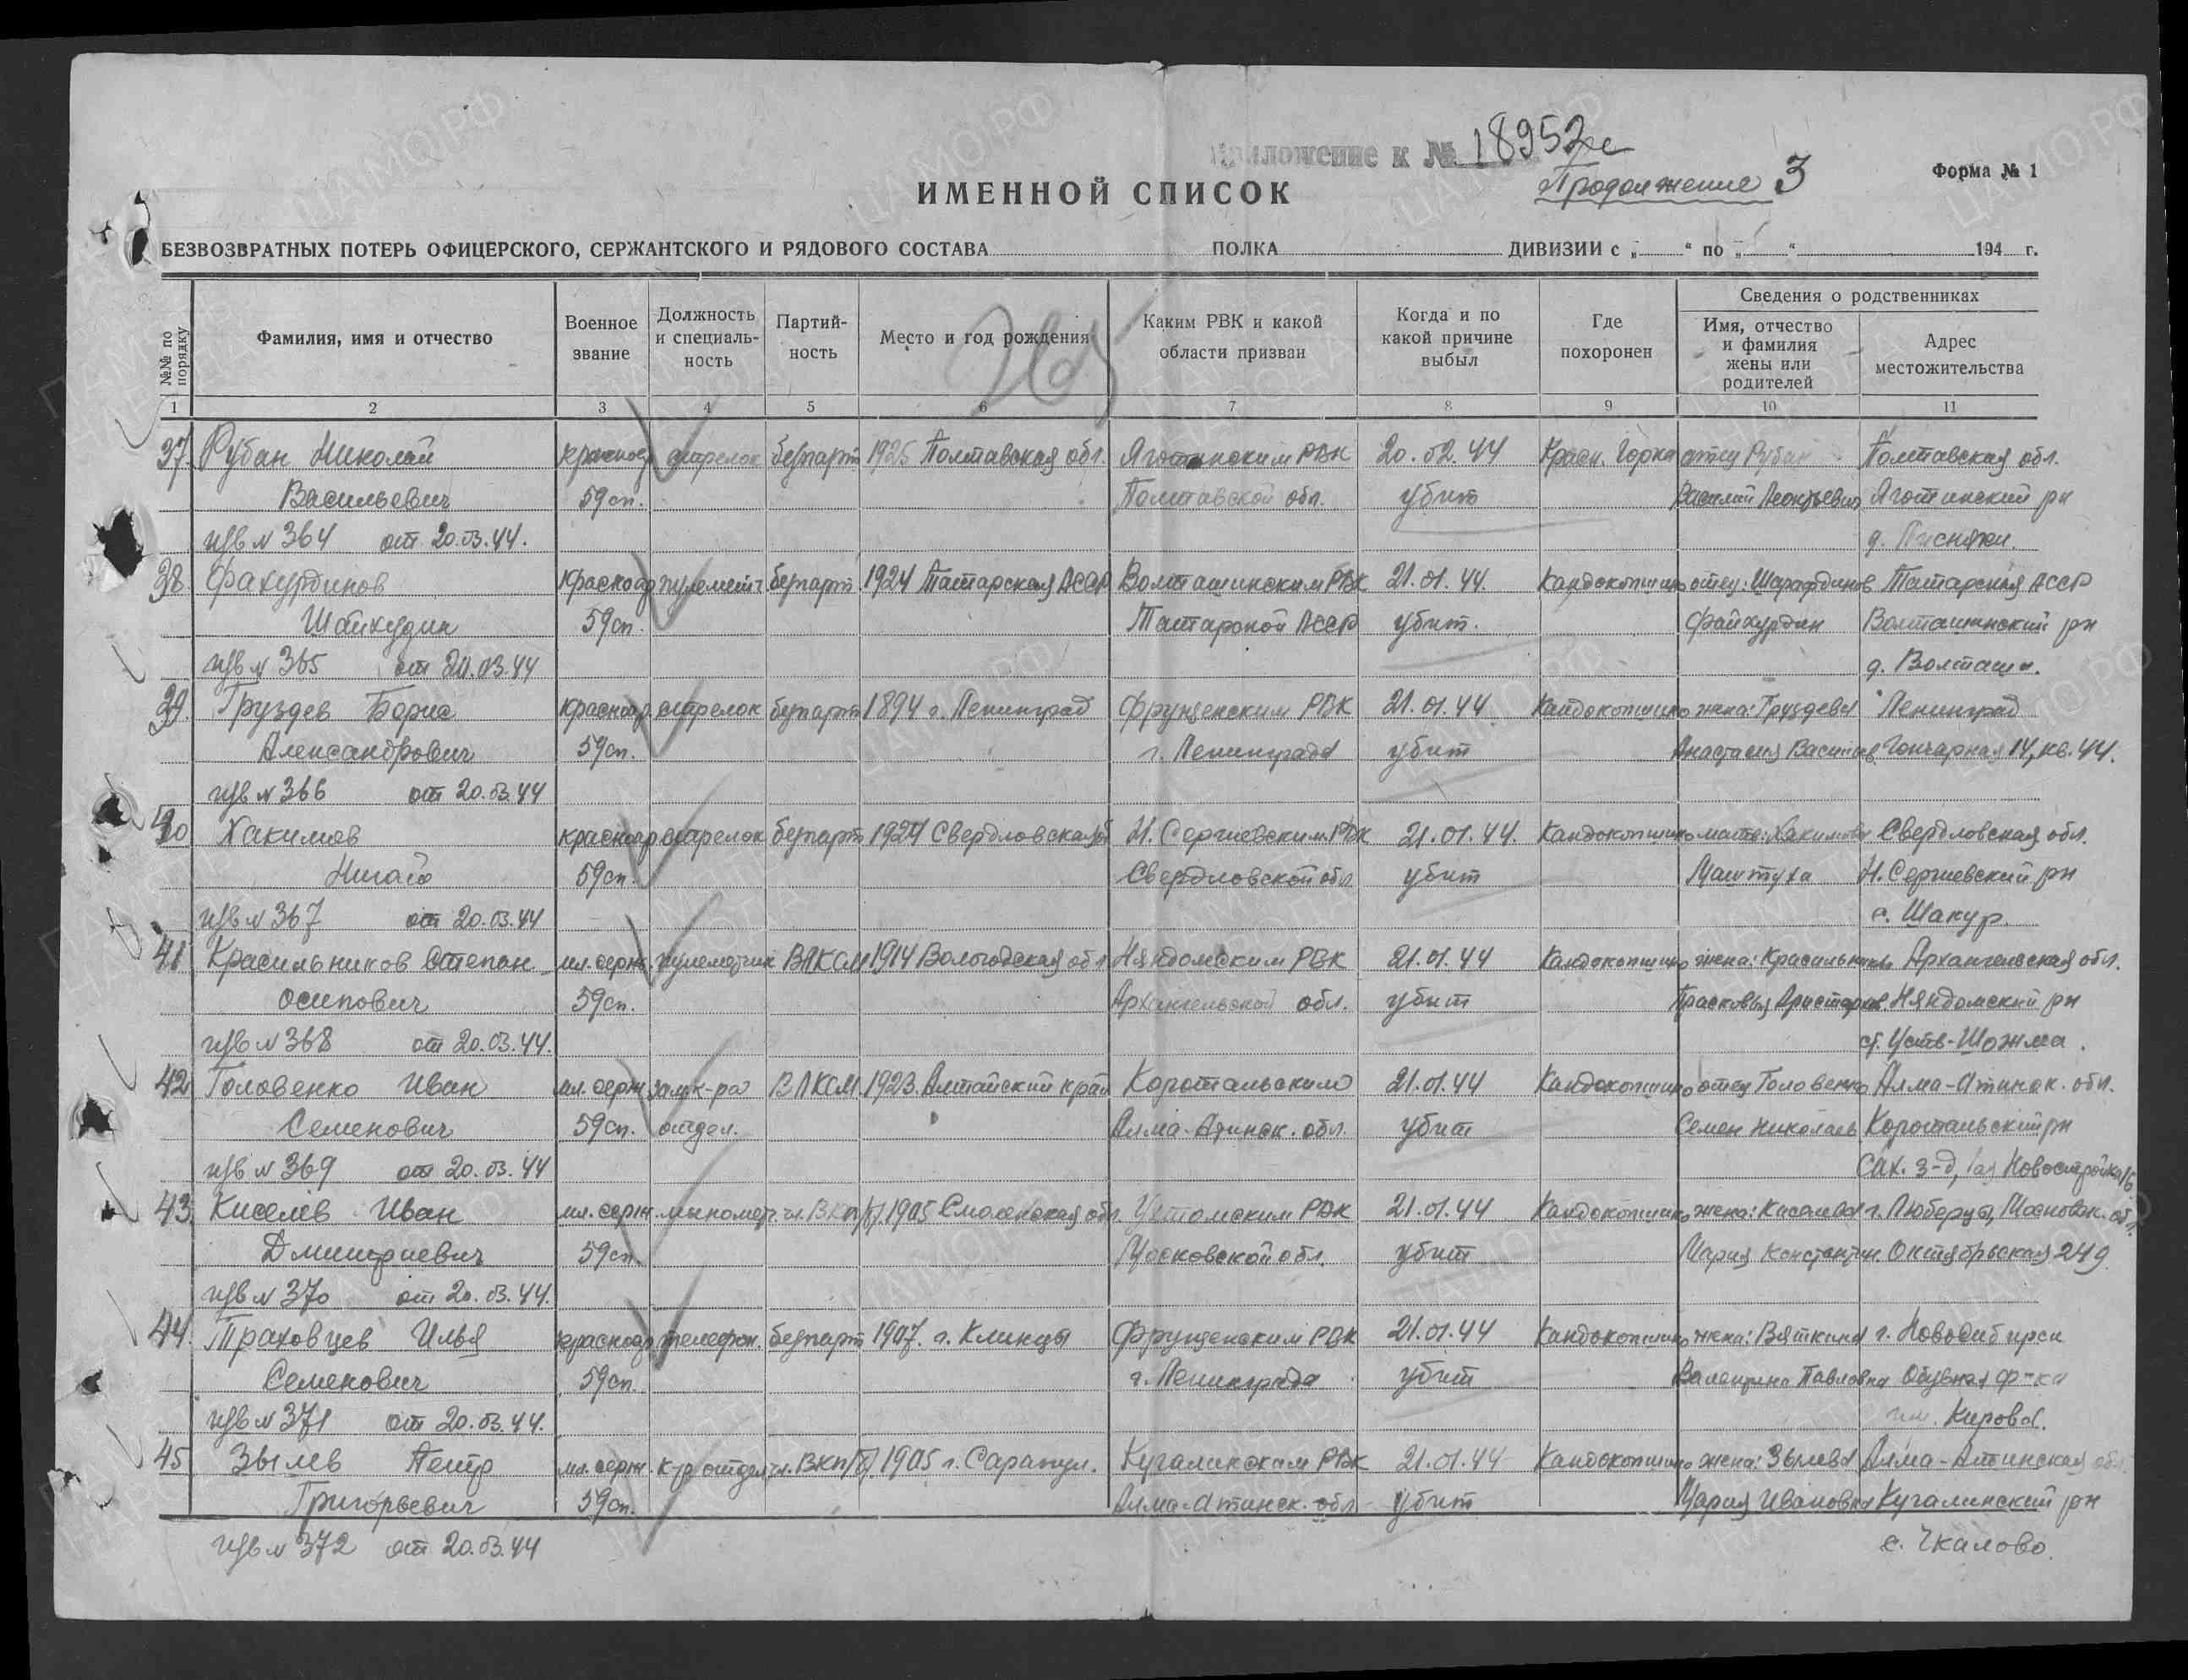 Приложение к № 18957с
Продолжение 3
Форма № 1
ИМЕННОЙ СПИСОК
БЕЗВОЗВРАТНЫХ ПОТЕРЬ ОФИЦЕРСКОГО, СЕРЖАНТСКОГО И РЯДОВОГО СОСТАВА ПОЛКА ДИВИЗИИ с „ “ по „ “ 194 г.
№№ по порядку
Фамилия, имя и отчество
Военное звание
Должность и специальность
Партийность
Место и год рождения
Каким РВК и какой области призван
Когда и по какой причине выбыл
Где похоронен
Сведения о родственниках
Имя, отчество и фамилия жены или родителей
Адрес местожительства
1 2 3 4 5 6 7 8 9 10 11
37. Рубан Николай красноар стрелок беспарт 1925 Полтавская обл. Яготинским РВК 20.02.44 Красн. Горка отец Рубан Полтавская обл.
Васильевич 59сп. Полтавской обл. убит Василий Леонтьевич Яготинский рн
изв № 364 от 20.03.44. д. Лисняки.
38. Фахурдинов красноар пулеметч беспарт 1924 Татарская АССР Волташинским РВК 21.01.44. Кандокопшино отец: Шарафдинов Татарская АССР
Шайхудин 59сп. Татарской АССР убит. Файхурдин Волташинский рн
изв № 365 от 20.03.44 д. Волташи.
39. Груздев Борис красноар. стрелок беспарт 1894 г. Ленинград Фрунзенским РВК 21.01.44 Кандокопшино жена: Груздева Ленинград
Александрович 59сп. г. Ленинграда убит Анастасия Васильев. Гончарная 14, кв. 44.
изв № 366 от 20.03.44
40 Хакимов красноар стрелок беспарт 1924 Свердловская обл Н. Сергиевским РВК 21.01.44. Кандокопшино мать: Хакимова Свердловская обл.
59сп. Свердловской обл убит Маштуха Н. Сергиевский рн
изв № 367 от 20.03.44 с. Шакур.
41 Красильников Степан мл. серж. пулеметчик ВЛКСМ 1914 Вологодская обл Няндомским РВК 21.01.44 Кандокопшино жена: Красильникова Архангельская обл.
Осипович 59сп. Архангельской обл. убит Прасковья Аристархов. Няндомский рн
изв № 368 от 20.03.44. ст. Усть-Шожма.
42 Головенко Иван мл. серж зам к-ра ВЛКСМ. 1923. Алтайский край Коротальским 21.01.44 Кандокопшино отец Головенко Алма-Атинск. обл.
Семенович 59сп. отдел. Алма-Атинск. обл. убит Семен Николаев Коротальский рн
изв № 369 от 20.03.44 Сах. з-д, Новостройка
43. Киселёв Иван мл. серж миномет. чл. ВКП/б/. 1905 Смоленская обл. Ухтомским РВК 21.01.44 Кандокопшино жена: Киселева г. Люберцы, Московск. обл.
Дмитриевич 59сп. Московской обл. убит Мария Константин. Октябрьская 249
изв № 370 от 20.03.44.
44. Траховцев Илья красноар телефон. беспарт 1907. г. Клинцы Фрунзенским РВК 21.01.44 Кандокопшино жена: Вяткина г. Новосибирск
Семенович 59сп. г. Ленинграда убит Валентина Павловна Обувная ф-ка
изв № 371 от 20.03.44. им. Кирова.
45 Зылев Петр мл. серж. к-р отдел чл. ВКП/б/. 1905 г. Сарапул. Кугалинским РВК 21.01.44 Кандокопшино жена: Зылева Алма-Атинская обл.
Григорьевич 59сп. Алма-Атинск. обл убит Мария Ивановна Кугалинский рн
изв № 372 от 20.03.44 с. Чкалово.